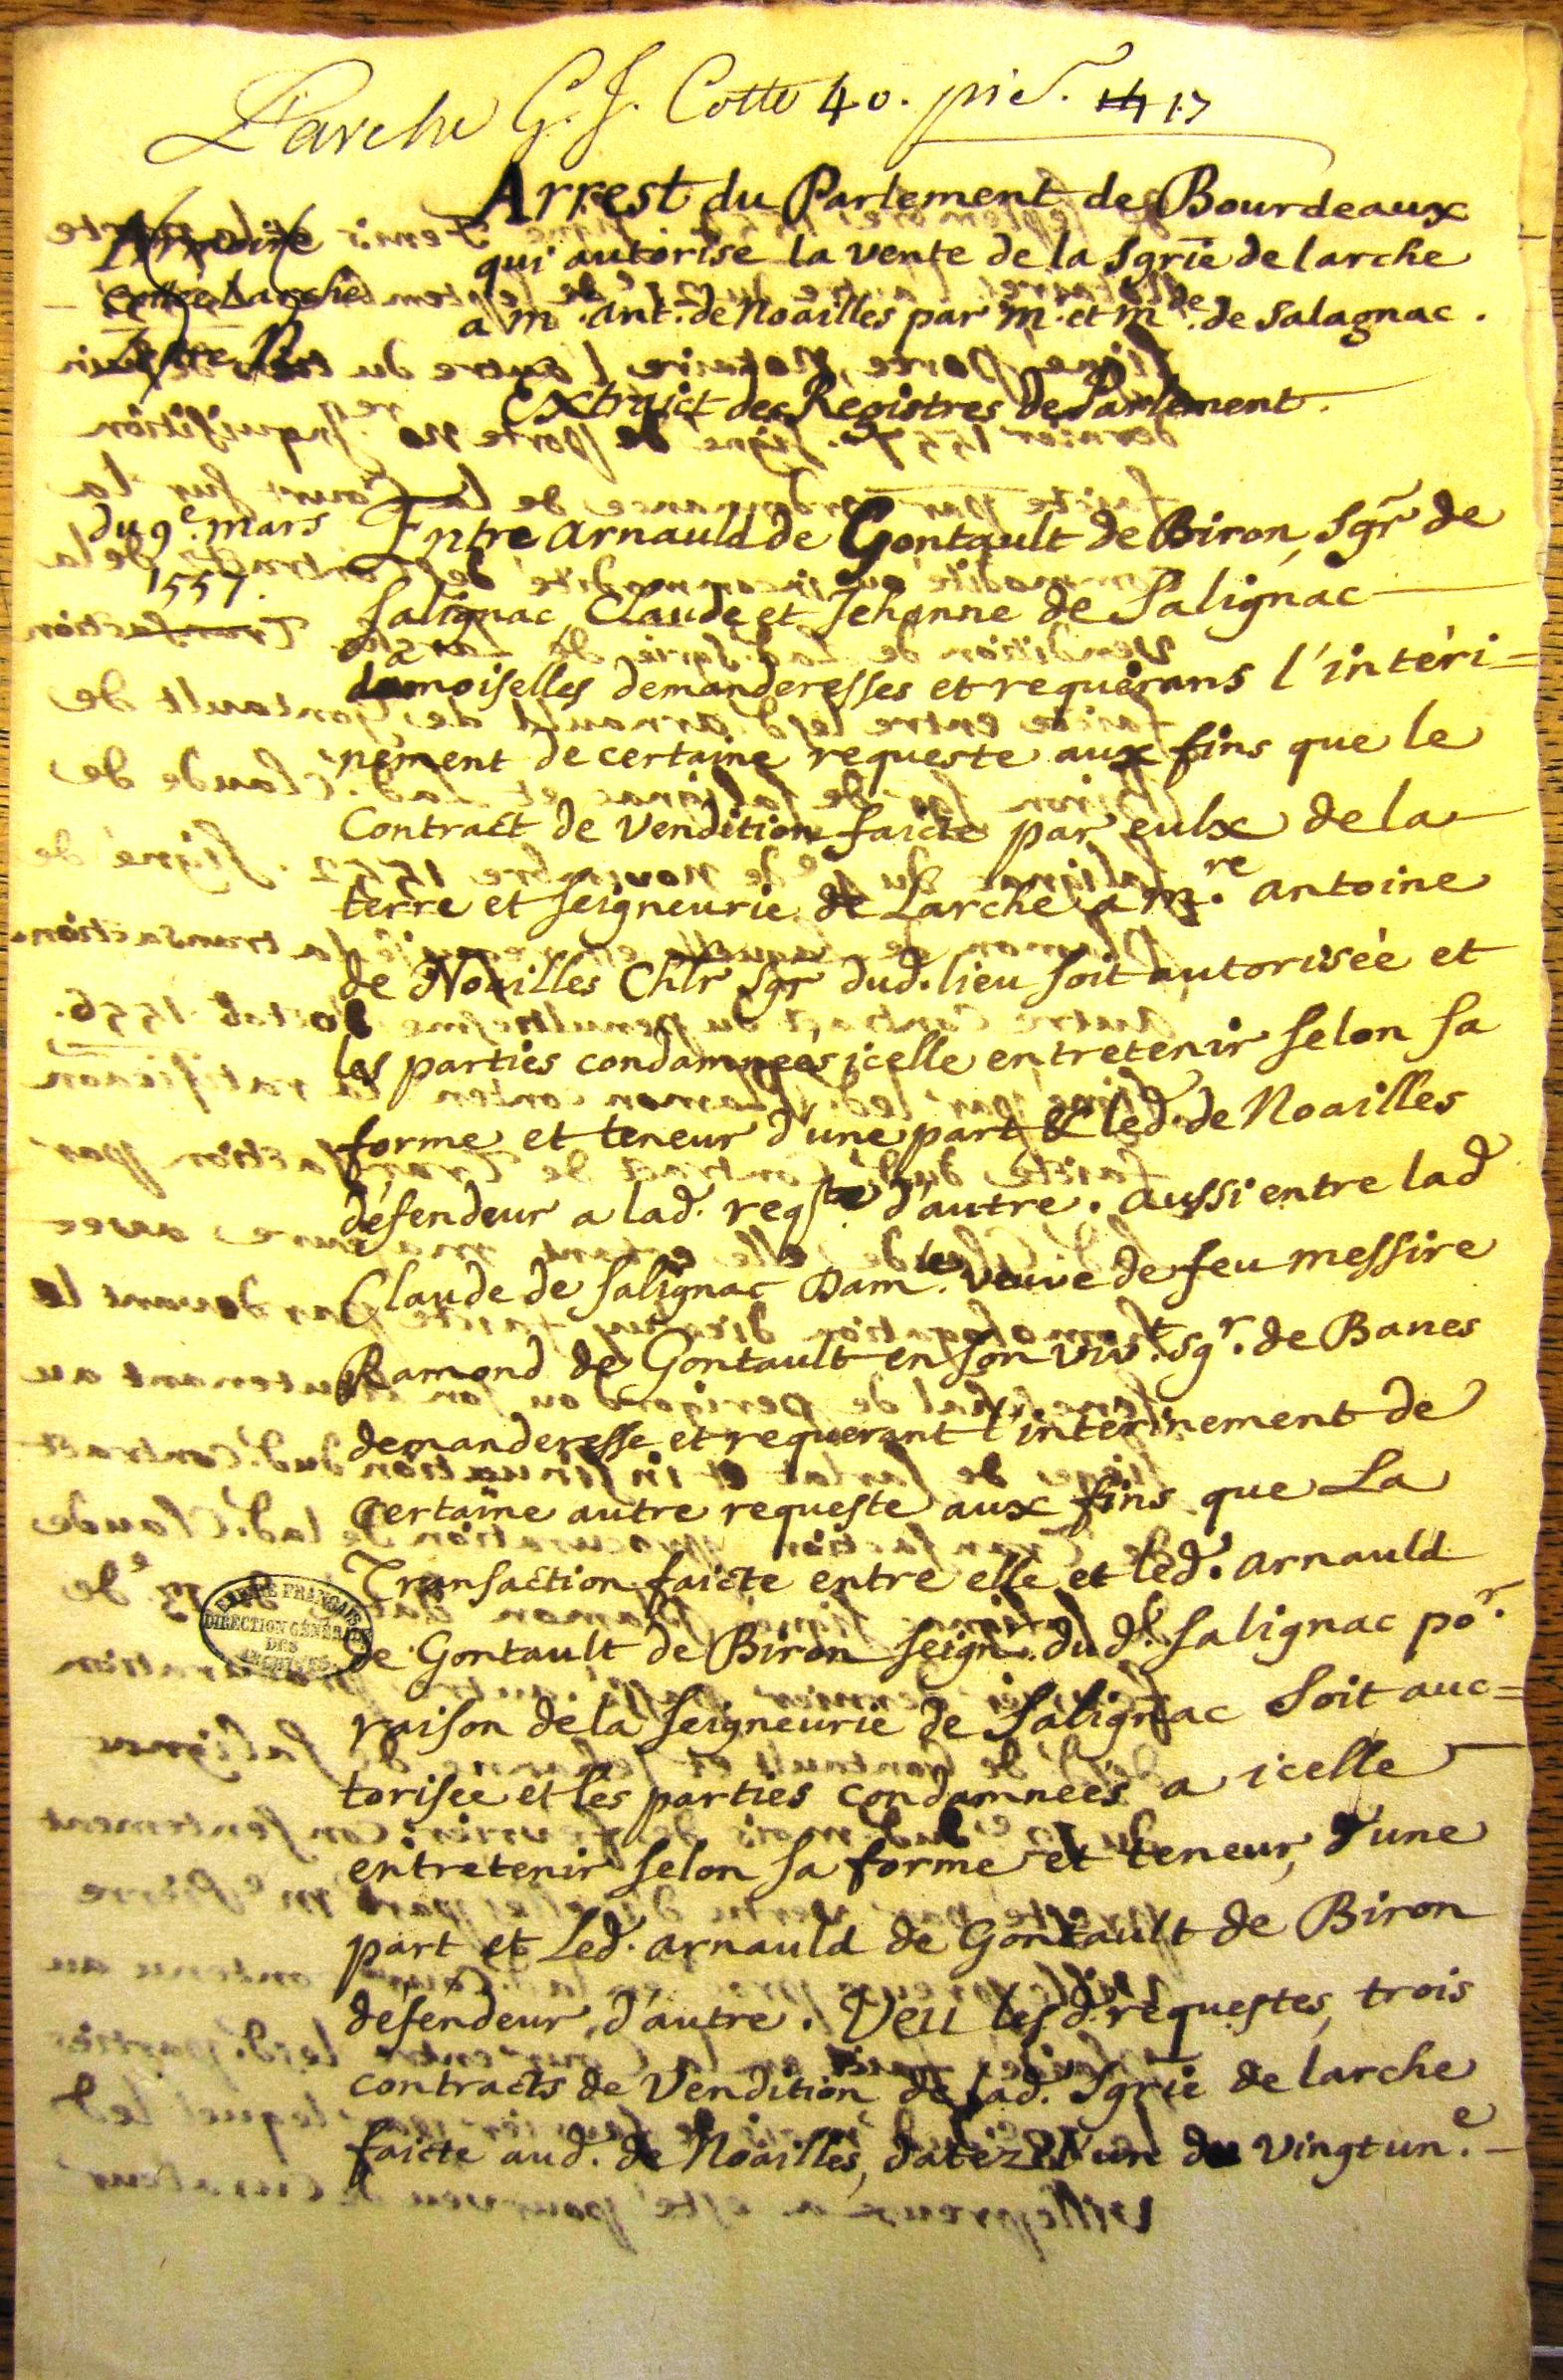 Larche G. J. Cotte 40. pie. 17
Arrest du Parlement de Bourdeaux
qui autorise la vente de la Sgrie de larche
a m. ant. de Noailles par m. et mde. de Salagnac.
Armoire
cotte Larche
Extraict des Registres de Parlement.
du 9e. mars
1557.
Entre Arnauld de Gontault de Biron, Sgr de
Salignac, Claude et Jehanne de Salignac
damoiselles demanderesses et requerans l'interi=
nement de certaine requeste aux fins que le
Contract de Vendition faicte par eulx de la
terre et seigneurie de Larche a Mre. antoine
de Noailles Chlr Sgr dud. lieu soit autorisée et
les parties condamnées icelle entretenir selon sa
forme et teneur d'une part & led. de Noailles
défendeur a lad. reqste d'autre. aussi entre lad
Claude de Salignac Damlle. veuve de feu messire
Ramond de Gontault en son vivt. sgr. de Banes
demanderesse et requerant l'interinement de
certaine autre requeste aux fins que La
Transaction faicte entre elle et led. arnauld
de Gontault de Biron seignr. dud. Salignac por.
raison de la seigneurie de Salignac soit auc=
torisee et les parties condamnees a icelle
entretenir selon sa forme et teneur, d'une
part et Led. arnauld de Gontault de Biron
defendeur, d'autre. Veu lesd. requestes, trois
contracts de Vendition de lad. Sgrie de larche
faicte aud. de Noailles, datez l'un du vingt un.e
EMPIRE FRANÇAIS
DIRECTION GÉNÉRALE
DES
ARCHIVES